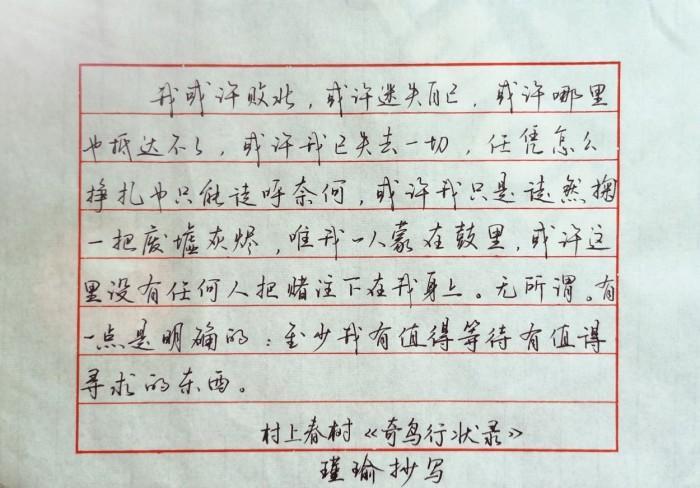 我或许败北，或许迷失自己，或许哪里
也抵达不了，或许我已失去一切，任凭怎么
挣扎也只能徒呼奈何，或许我只是徒然掬
一把废墟灰烬，唯我一人蒙在鼓里，或许这
里没有任何人把赌注下在我身上。无所谓。有
一点是明确的：至少我有值得等待有值得
寻求的东西。
村上春树《奇鸟行状录》
瑾瑜抄写